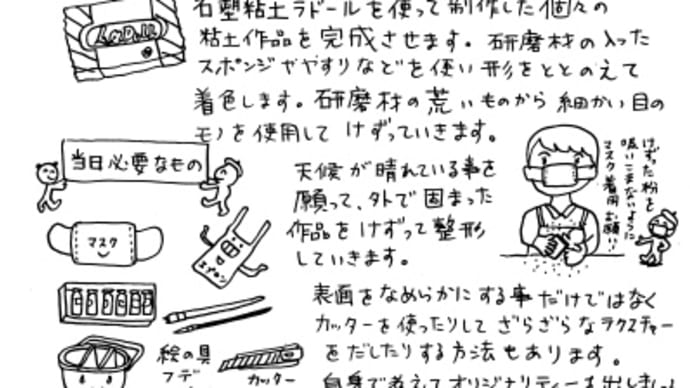 石塑粘土ラドールを使って制作した個々の
粘土作品を完成させます。研磨材の入った
スポンジややすりなどを使い形をととのえて
着色します。研磨材の荒いものから細かい目の
モノを使用してけずっていきます。
当日必要なもの
マスク
エプロン
絵の具
フデ
カッター
天候が晴れている事を
願って、外で固まった
作品をけずって整形
していきます。
けずった粉を
吸いこまないように
マスク着用お願い!
表面をなめらかにする事だけではなく
カッターを使ったりしてざらざらなラクスチャー
をだしたりする方法もあります。
自身で考えてオリジナリティーを出しましょ